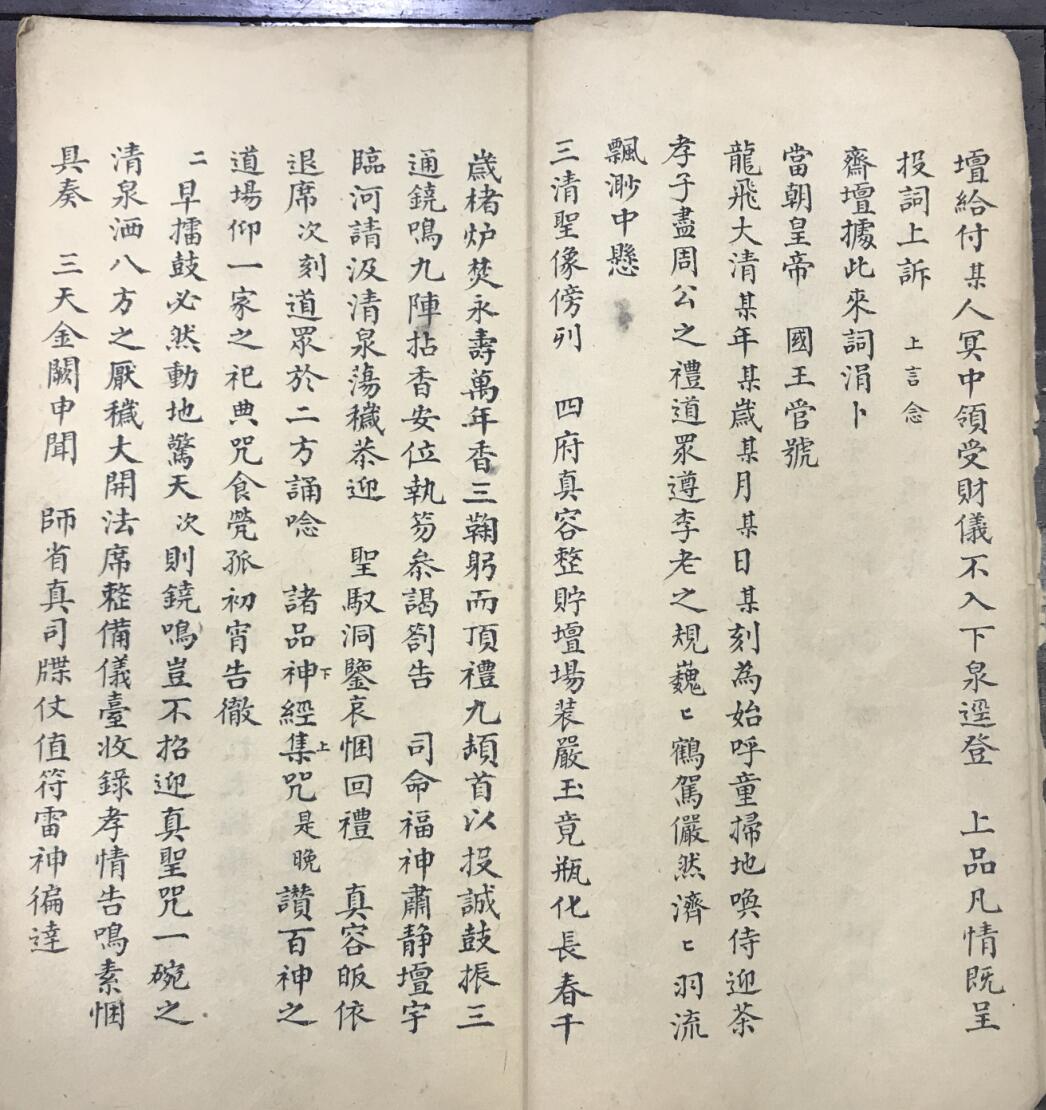 壇給付某人冥中領受財儀不入下泉逕登　上品凡情既呈
投詞上訴　上言念
齋壇據此來詞涓卜
當朝皇帝　國王官號
龍飛大清某年某歲某月某日某刻為始呼童掃地喚侍迎茶
孝子盡周公之禮道眾遵李老之規巍〻鶴駕儼然濟〻羽流
飄渺中懸
三清聖像傍列　四府真容整貯壇場裝嚴玉竟瓶化長春千
歲楮炉焚永壽萬年香三鞠躬而頂禮九頓首以投誠鼓振三
通鐃鳴九陣拈香安位執笏叅謁劄告　司命福神肅静壇宇
臨河請汲清泉蕩穢恭迎　聖馭洞鑒哀悃回禮　真容皈依
退席次刻道眾於二方誦唸　諸品神下經集上咒是晚讚百神之
道場仰一家之祀典咒食煢孤初宵告徹
二早擂鼓必然動地驚天次則鐃鳴豈不招迎真聖咒一碗之
清泉洒八方之厭穢大開法席整備儀臺收錄孝情告鳴素悃
具奏　三天金闕申聞　師省真司牒仗值符雷神徧達